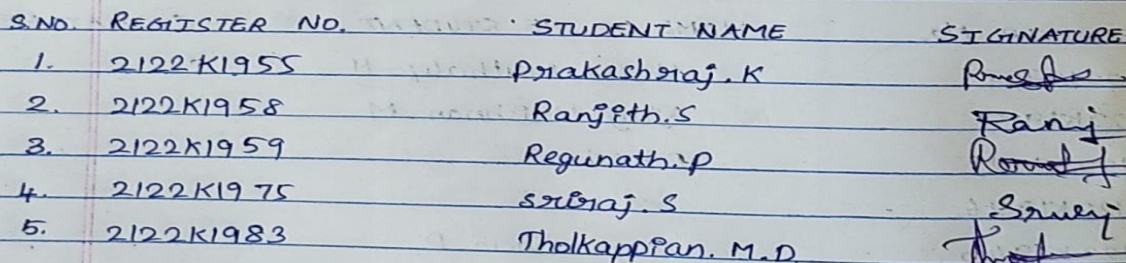 S.NO. REGISTER NO. STUDENT NAME SIGNATURE
1. 2122K1955 Prakashraj.K
2. 2122K1958 Ranjith.S Ranj
3. 2122K1959 Regunath.P
4. 2122K1975 Sriraj.S
5. 2122K1983 Tholkappian.M.D